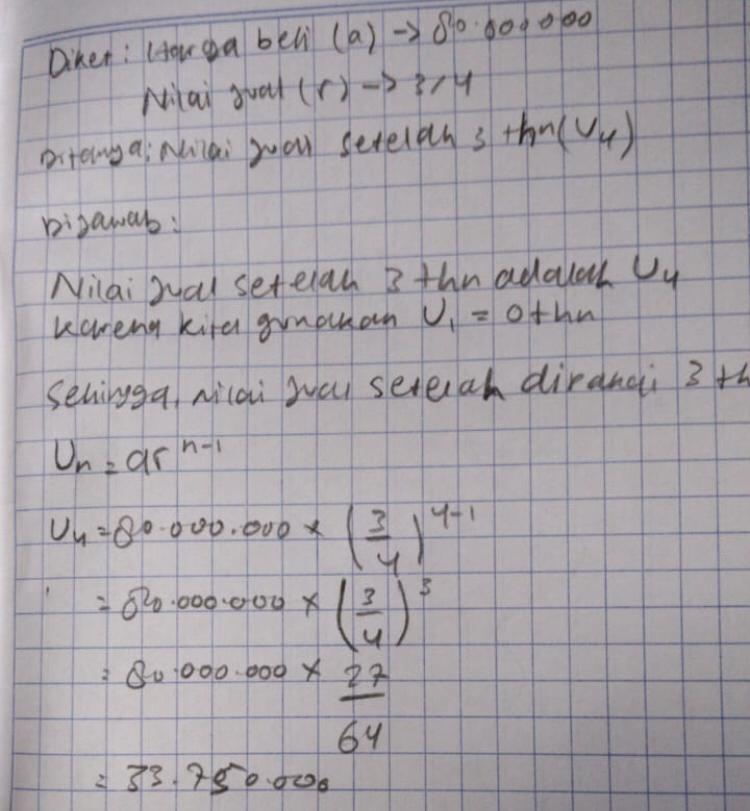 Diket : Harga beli (a) -> 80.000.000
Nilai jual (r) -> 3/4
Ditanya : Nilai jual setelah 3 thn (U₄)
Dijawab :
Nilai jual setelah 3 thn adalah U₄
karena kita gunakan U₁ = 0 thn
Sehingga, nilai jual setelah dipakai 3 th
Uₙ = arⁿ⁻¹
U₄ = 80.000.000 × (3/4)⁴⁻¹
= 80.000.000 × (3/4)³
= 80.000.000 × 27/64
= 33.750.000